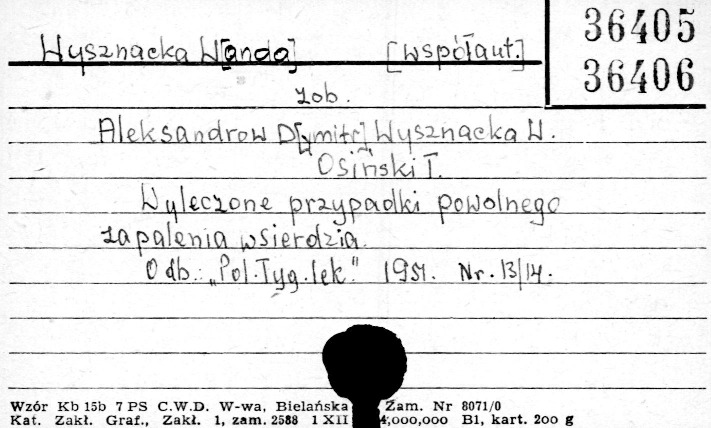 36405
Wysznacka W[anda] [współaut.]
36406
zob.
Aleksandrow D[ymitr] Wysznacka W.
Osiński T.
Wyleczone przypadki powolnego
zapalenia wsierdzia.
Odb.: „Pol. Tyg. lek." 1951. Nr. 13/14.
Wzór Kb 15b 7 PS C.W.D. W-wa, Bielańska Zam. Nr 8071/0
Kat. Zakł. Graf., Zakł. 1, zam. 2588 1 XII 4,000,000 B1, kart. 200 g